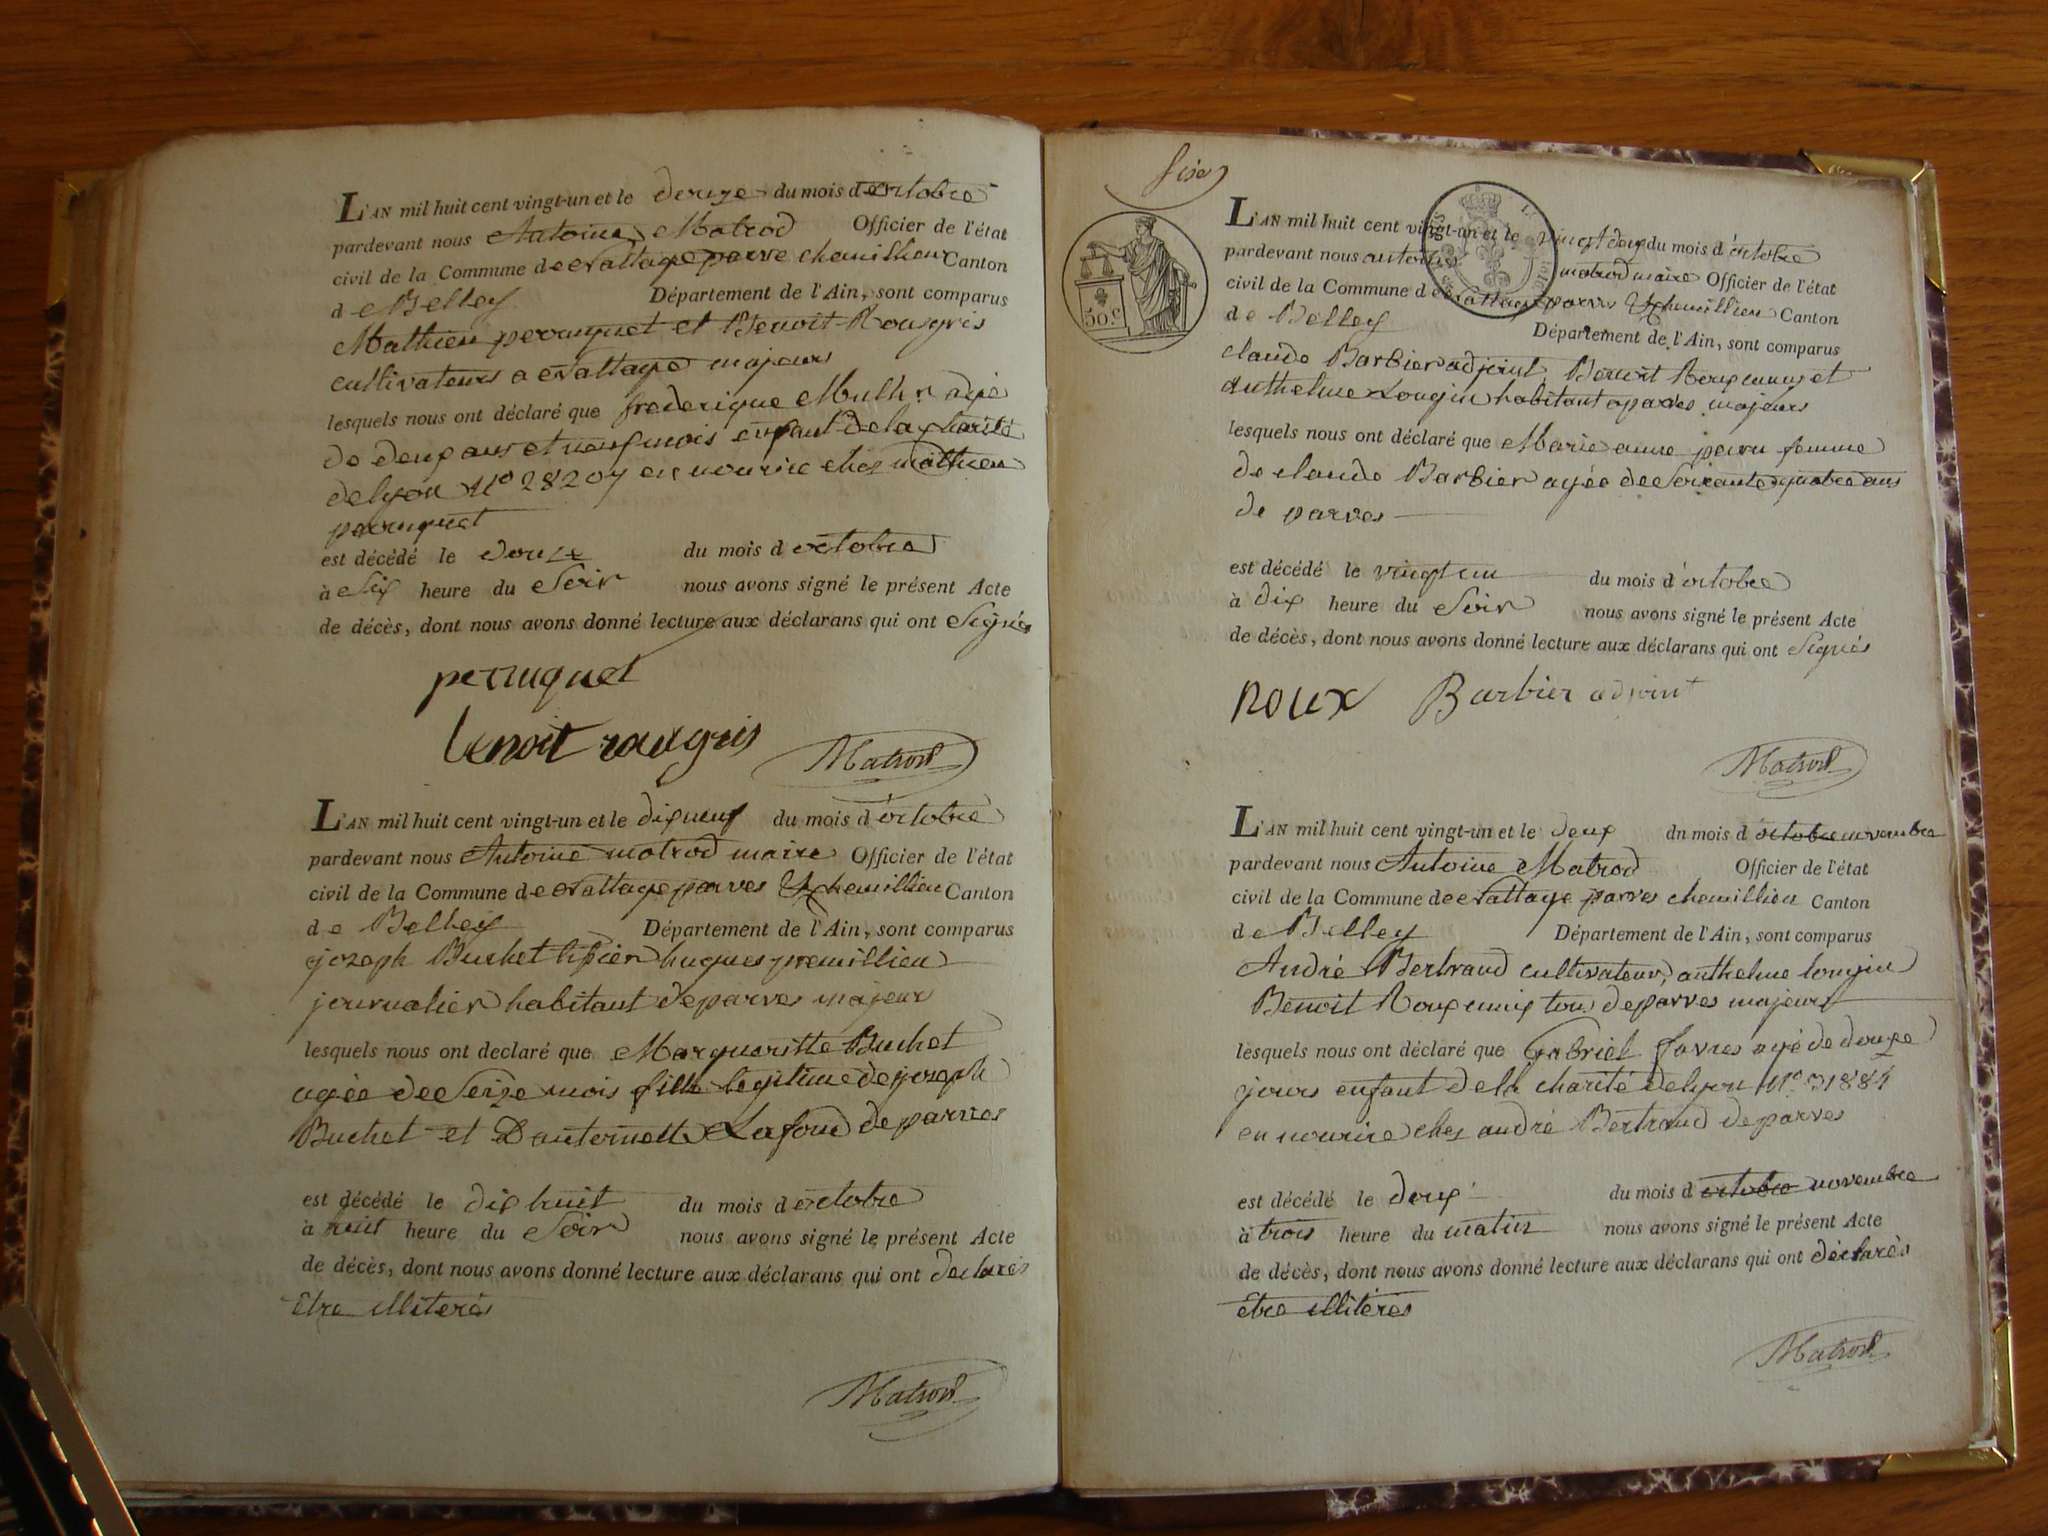 L'AN mil huit cent vingt-un et le douze du mois d octobre
pardevant nous Antoine Matrod Officier de l'état
civil de la Commune de nattage parve chemillieu Canton
de Belley Département de l'Ain, sont comparus
Mathieu perruquet et Benoit Rougris
cultivateurs a nattage majeurs
lesquels nous ont déclaré que frederique agé
de deux ans et neuf mois enfant de la charité
de lyon N° 28207 en nourice chez mathieu
perruquet
est décédé le douze du mois d octobre
à Six heure du Soir nous avons signé le présent Acte
de décès, dont nous avons donné lecture aux déclarans qui ont Signés
perruquet
benoit rougris
Matrod
L'AN mil huit cent vingt-un et le dixneuf du mois d'octobre
pardevant nous Antoine matrod maire Officier de l'état
civil de la Commune de nattage parves & chemillieu Canton
de Belley Département de l'Ain, sont comparus
jozeph Buchet hugues premillieu
journalier habitant de parves majeur
lesquels nous ont declaré que Margueritte Buchet
agée de Seize mois fille legitime de jozeph
Buchet et D'antoinette Lafond de parves
est décédé le dix huit du mois d octobre
à huit heure du Soir nous avons signé le présent Acte
de décès, dont nous avons donné lecture aux déclarans qui ont declarés
Etre illiterés
Matrod
50.c
L'AN mil huit cent vingt-un et le vingt deux du mois d'octobre
pardevant nous antoine matrod maire Officier de l'état
civil de la Commune de nattage parves & chemillieu Canton
de Belley Département de l'Ain, sont comparus
claude Barbier adjoint, Benoit et
Anthelme Longin habitant a parves majeurs
lesquels nous ont déclaré que Marie anne femme
de claude Barbier agée de Soixante quatre ans
de parves
est décédé le vingt un du mois d'octobre
à dix heure du Soir nous avons signé le présent Acte
de décès, dont nous avons donné lecture aux déclarans qui ont Signés
ROUX Barbier adjoint
Matrod
L'AN mil huit cent vingt-un et le deux du mois d octobre novembre
pardevant nous Antoine Matrod Officier de l'état
civil de la Commune de nattage parves chemillieu Canton
de Belley Département de l'Ain, sont comparus
André Bertrand cultivateur, anthelme longin
Benoit tous de parves majeurs
lesquels nous ont déclaré que Gabriel favres agé de douze
jours enfant de la charité de lyon N° 31884
en nourice chez andré Bertrand de parves
est décédé le deux du mois d octobre novembre
à trois heure du matin nous avons signé le présent Acte
de décès, dont nous avons donné lecture aux déclarans qui ont déclarés
etre illitérés
Matrod